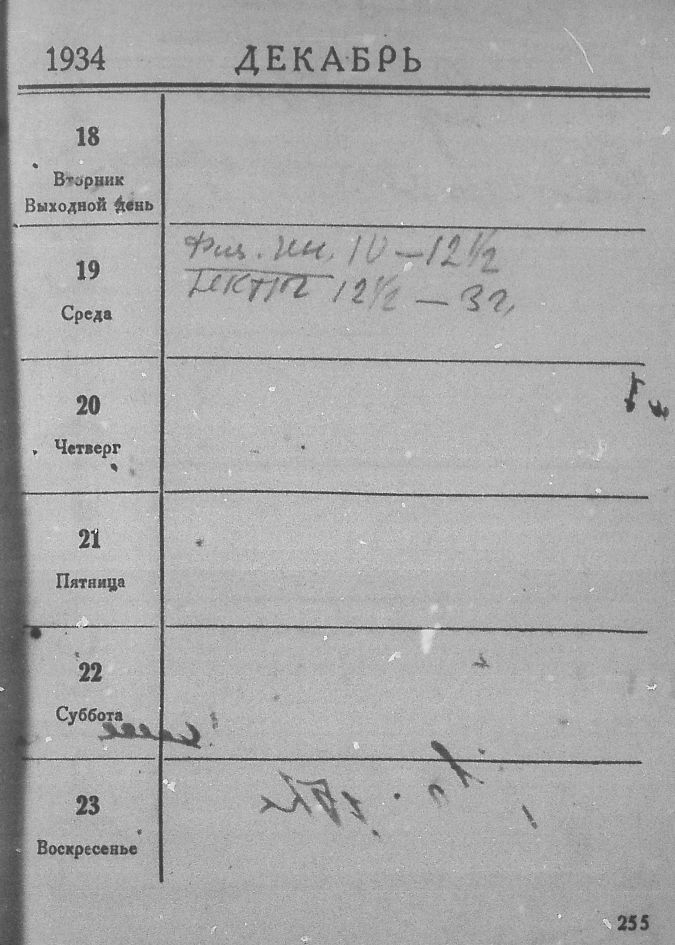 1934 ДЕКАБРЬ
18
Вторник
Выходной день
19
Среда
Физ. ин. 10 — 12 1/2
12 1/2 — 3 ч.
20
Четверг
21
Пятница
22
Суббота
23
Воскресенье
255